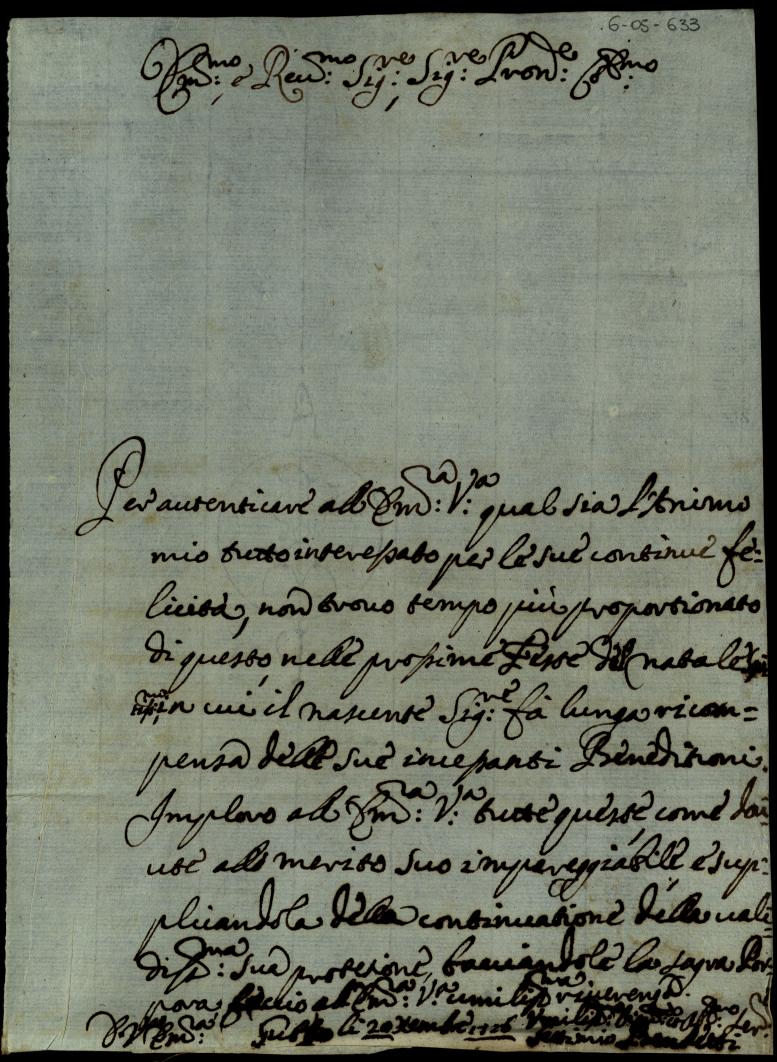 6-05-633
Em:mo e Reu:mo Sig:re Sig:re Pron:e Col:mo
Per autenticare all Em:a V:a qual sia l'Animo
mio tutto interessato per le sue continue fe=
licità, non trovo tempo più proportionato
di questo, nelle prossime Feste del natale
in cui il nascente Sig:re fà lunga ricom=
pensa delle sue incessanti Beneditioni.
Imploro all Em:a V:a tutte queste, come dou
ute all merito suo impareggiabile e sup=
plicandola della continuatione della uali=
diss:ma sua protetione, baciandole la sagra Por=
pora faccio all Em:a V:a umiliss:ma riuerenza.
Di V: Em:a li 20 Xembre 1726 Umiliss: